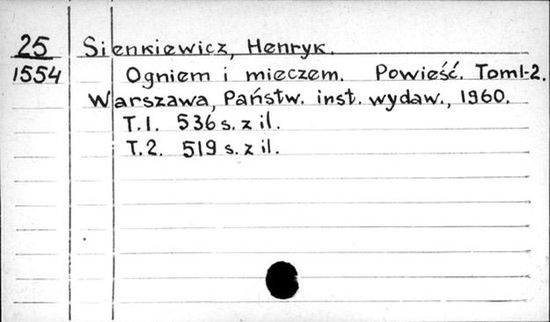 25 Sienkiewicz, Henryk.
1554 Ogniem i mieczem. Powieść. Tom1-2.
Warszawa, Państw. inst. wydaw., 1960.
T.1. 536 s. z il.
T.2. 519 s. z il.